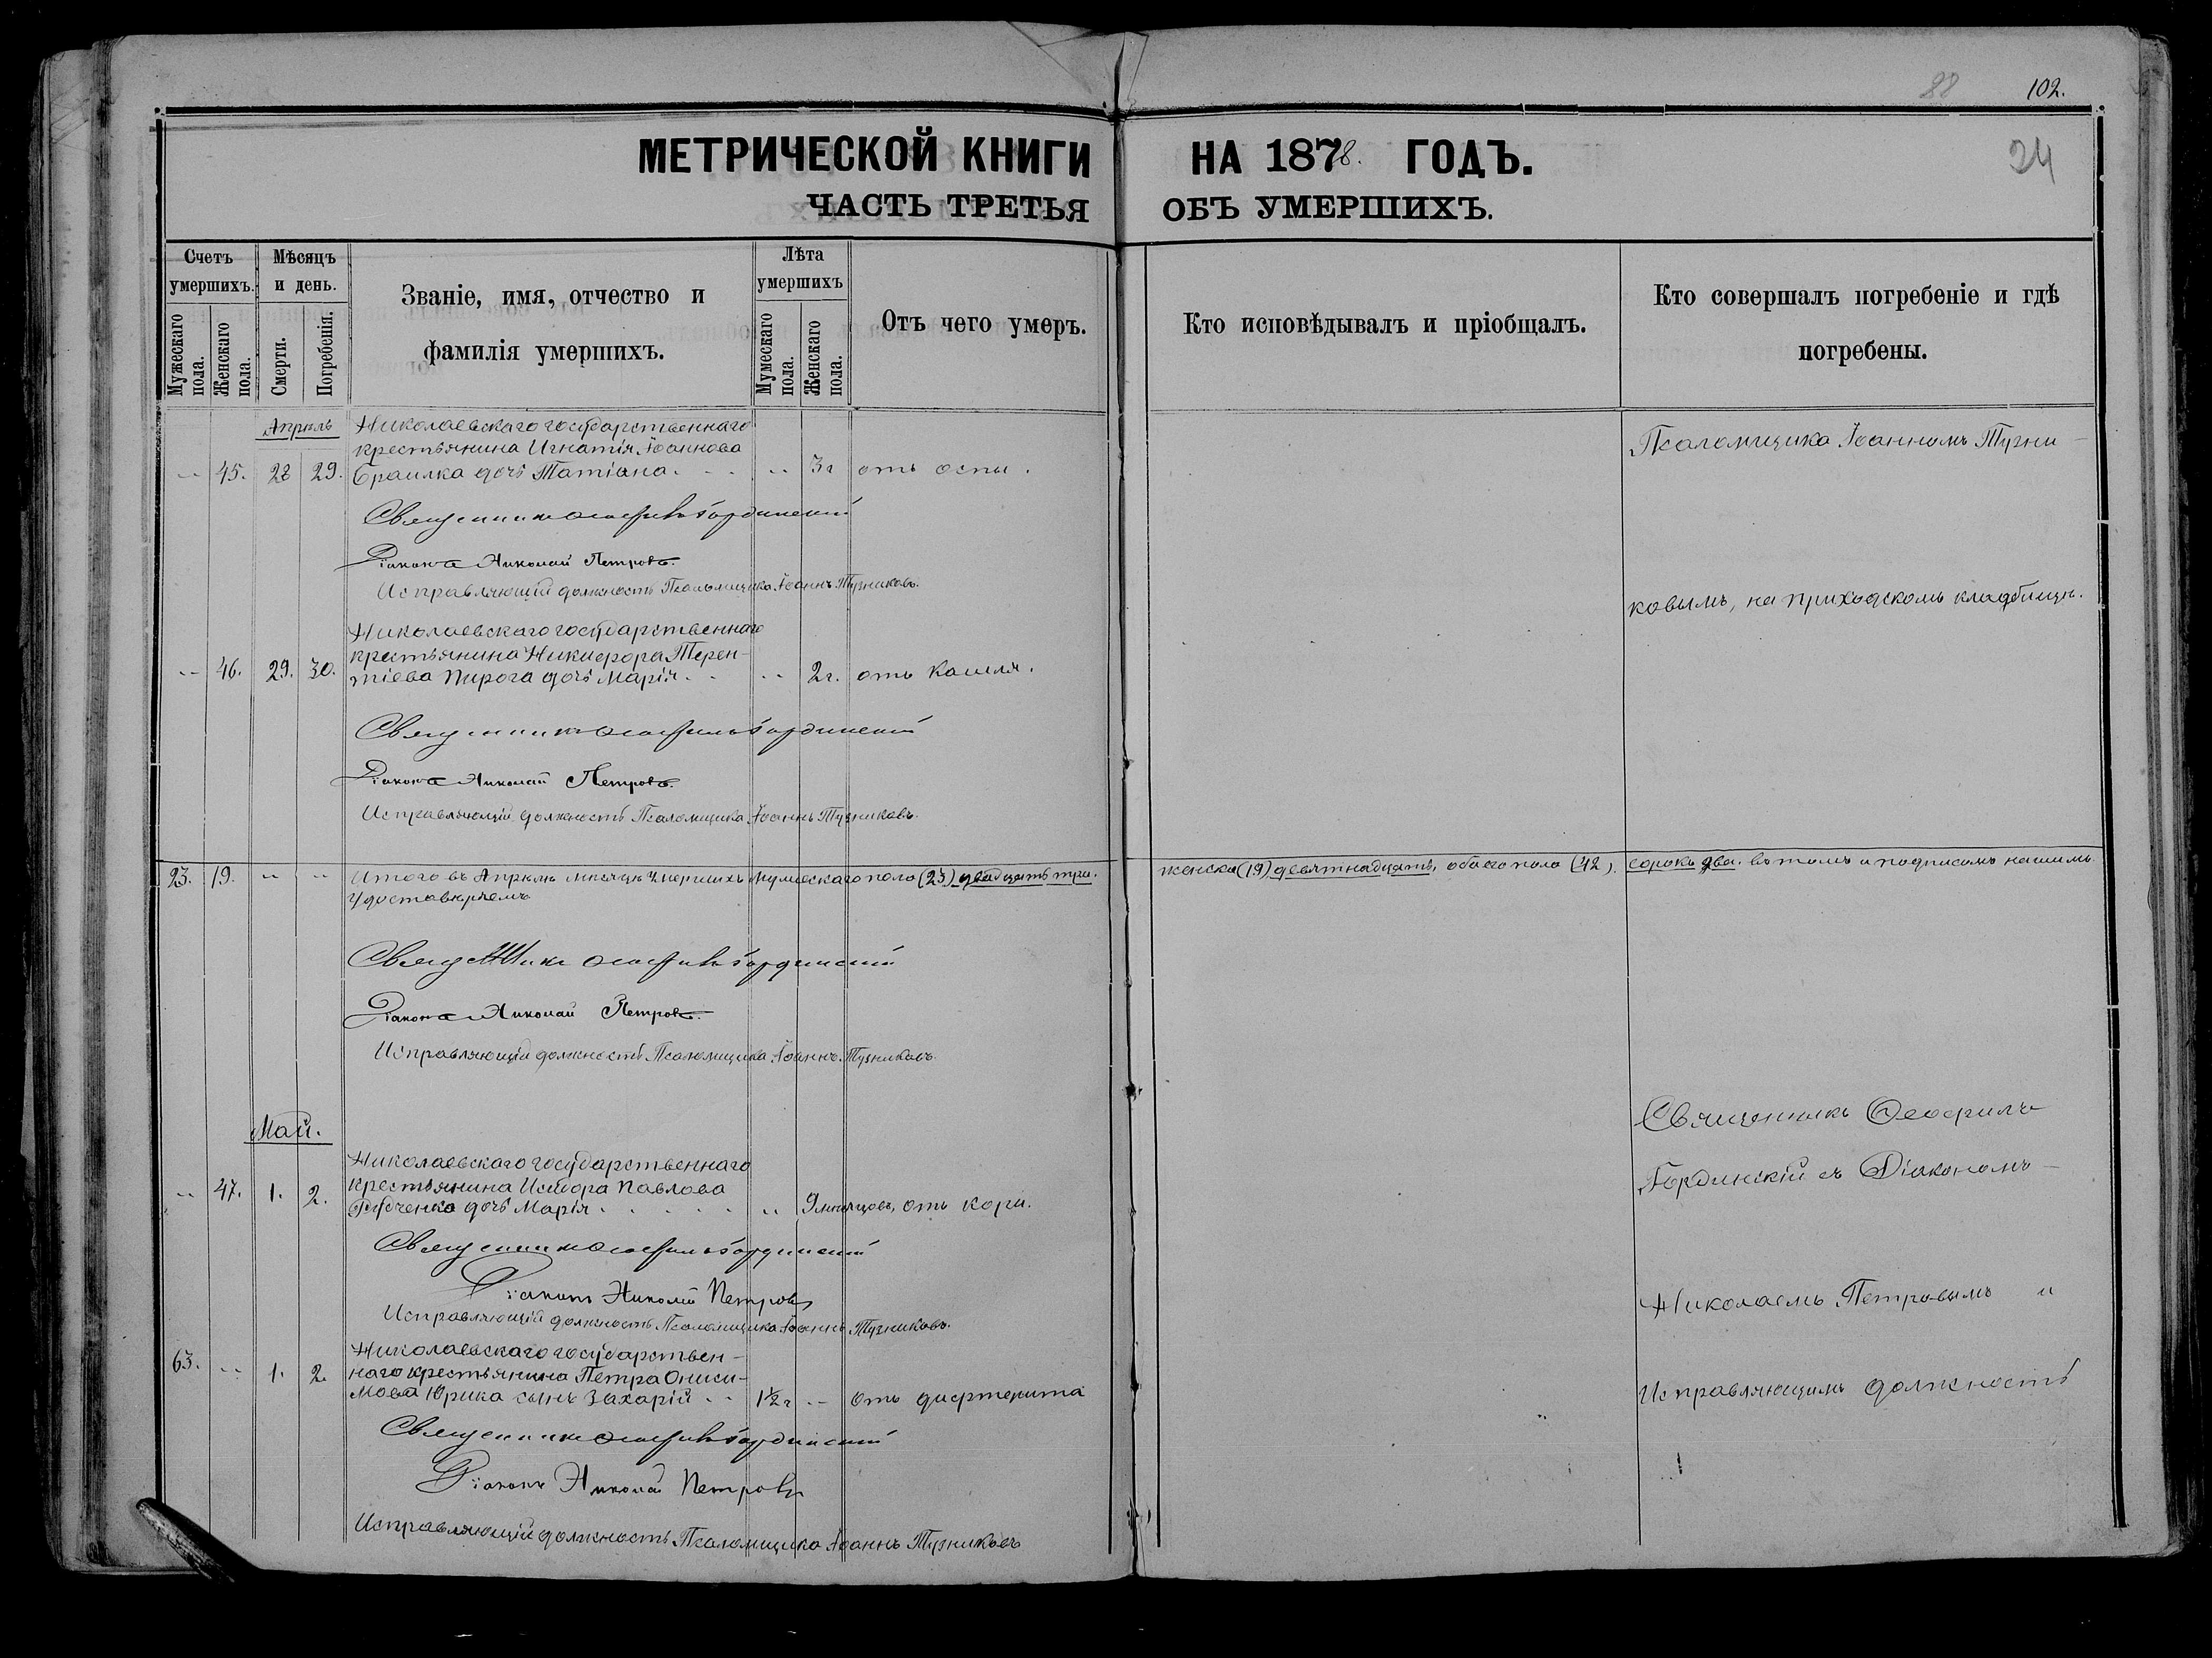 88 102.
24
МЕТРИЧЕСКОЙ КНИГИ НА 1878. ГОДЪ.
ЧАСТЬ ТРЕТЬЯ ОБЪ УМЕРШИХЪ.
Счетъ умершихъ.
Мужескаго пола.
Женскаго пола.
Мѣсяцъ и день.
Смерти.
Погребенія.
Званіе, имя, отчество и
фамилія умершихъ.
Лѣта умершихъ
Мужескаго пола.
Женскаго пола.
Отъ чего умеръ.
Кто исповѣдывалъ и пріобщалъ.
Кто совершалъ погребеніе и гдѣ
погребены.
Апрѣль
Николаевскаго государственнаго
крестьянина Игнатія Іоаннова
45. 28 29. Браилка дочь Татіана. 3 г отъ оспы.
Священникъ Ѳеофилъ Гординскій
Діаконъ Николай Петровъ.
Исправляющій должность Псаломщика Іоаннъ Тузниковъ.
Николаевскаго государственнаго
крестьянина Никифора Терен-
46. 29. 30. тіева Пирога дочь Марія. 2 г. отъ кашля.
Священникъ Ѳеофилъ Гординскій
Діаконъ Николай Петровъ.
Исправляющій должность Псаломщика Іоаннъ Тузниковъ.
Псаломщика Іоанномъ Тузни-
ковымъ, на приходскомъ кладбищѣ.
23. 19. Итого въ Апрѣлѣ мѣсяцѣ умершихъ мужескаго пола (23) двадцать три. женска (19) девятнадцать, обоего пола (42). сорокъ два. въ томъ и подписомъ нашимъ
Удостовѣряемъ
Священникъ Ѳеофилъ Гординскій
Діаконъ Николай Петровъ.
Исправляющій должность Псаломщика Іоаннъ Тузниковъ.
Май.
Николаевскаго государственнаго
крестьянина Исидора Павлова
47. 1. 2. Рудченка дочь Марія. 9 мѣсяцовъ, отъ кори.
Священникъ Ѳеофилъ Гординскій
Діаконъ Николай Петровъ
Исправляющій должность Псаломщика Іоаннъ Тузниковъ.
Николаевскаго государствен-
63. 1. 2. наго крестьянина Петра Ониси-
мова Юрика сынъ Захарій 1½ г. отъ дифтерита
Священникъ Ѳеофилъ Гординскій
Діаконъ Николай Петровъ
Исправляющій должность Псаломщика Іоаннъ Тузниковъ
Священникъ Ѳеофилъ
Гординскій съ Діакономъ
Николаемъ Петровымъ и
Исправляющимъ должность